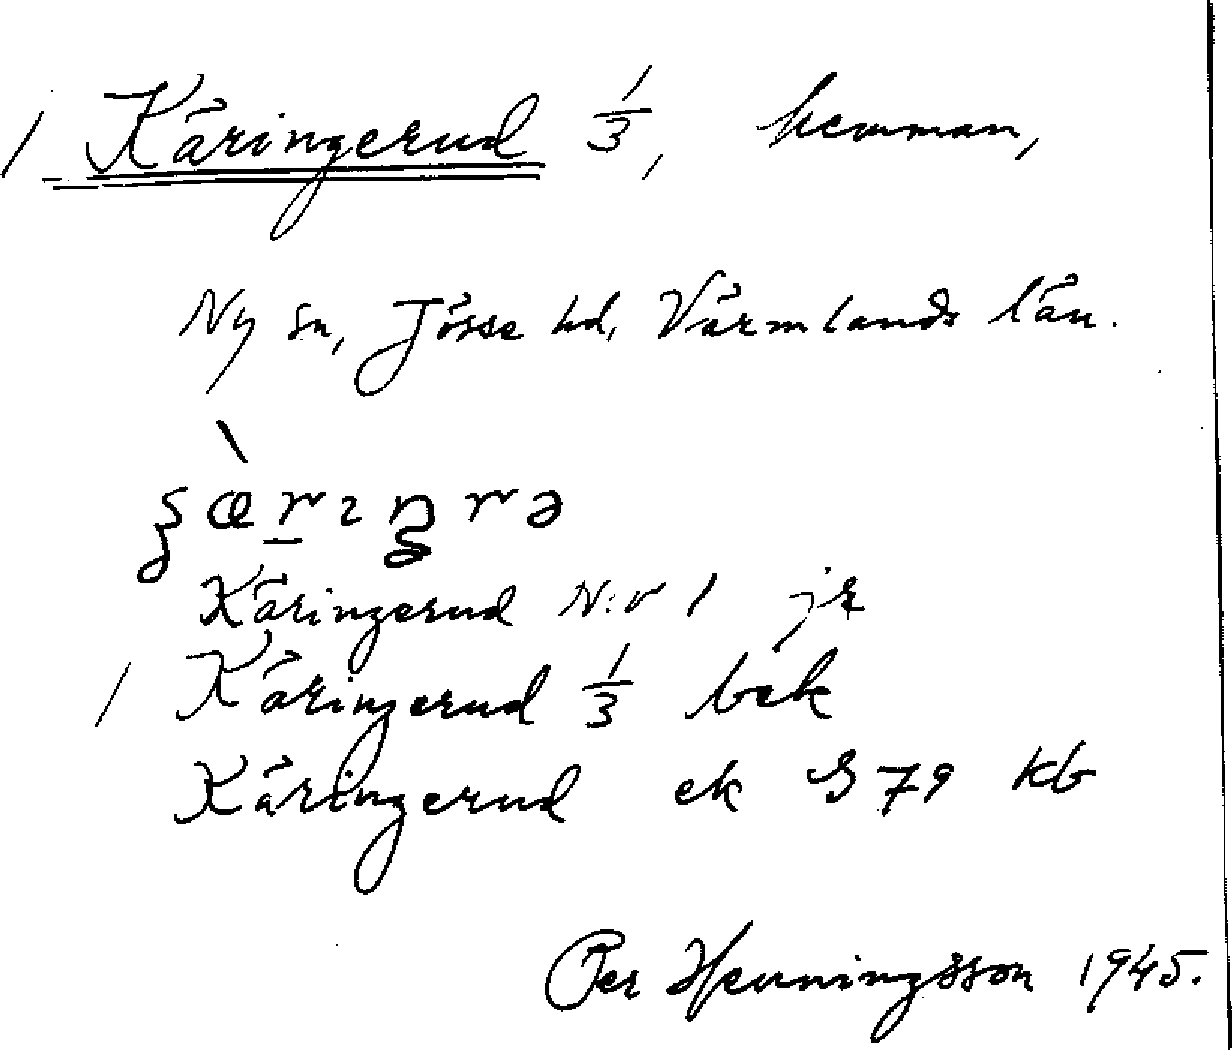 1 Käringerud 1/3, hemman,
Ny sn, Jösse hd, Värmlands län.
Käringerud N:o 1 jr
1 Käringerud 1/3 bek
Käringerud ek S 79 kb
Per Henningsson 1945.